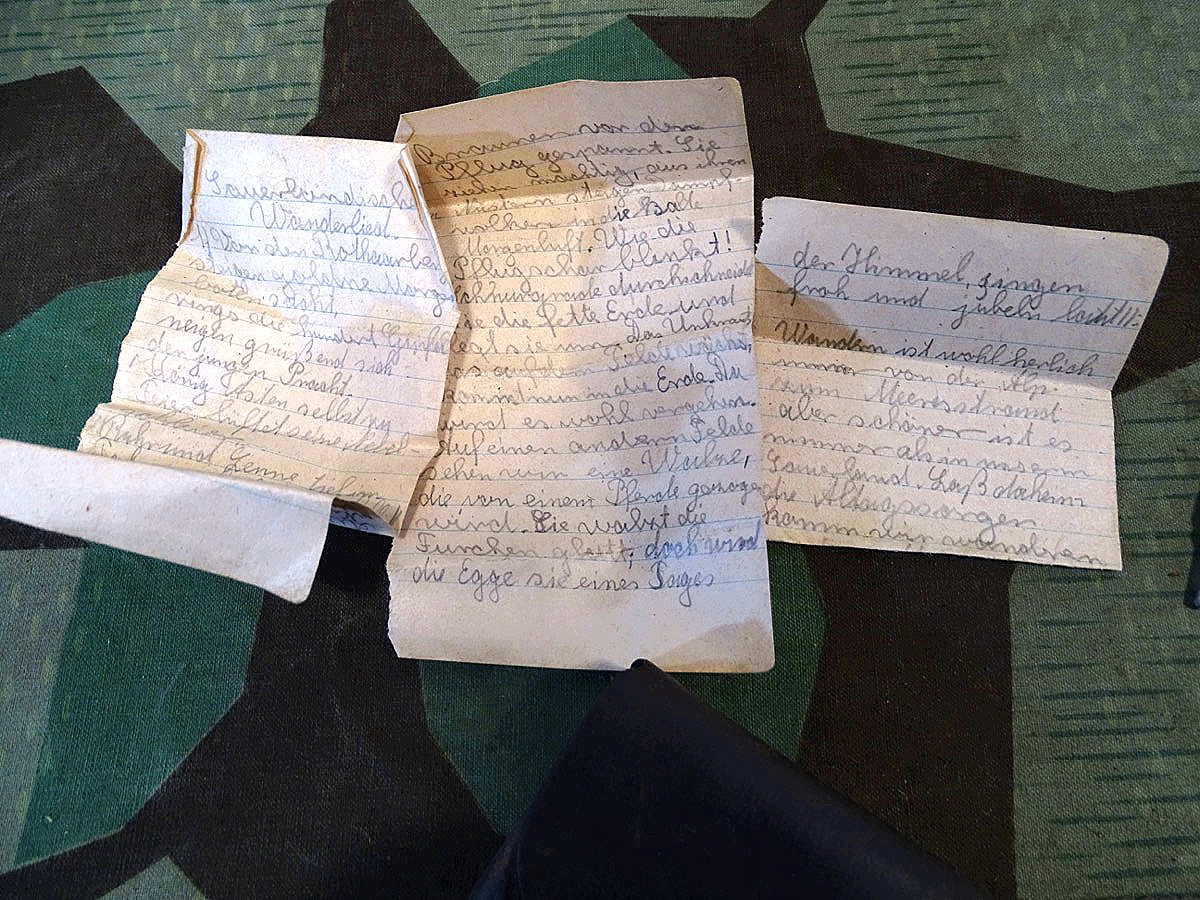 Sauerländische
Wanderlied.
Von den Rothaarber
boten zieht,
rings die hundert Ginster
neigen grüßend sich
der jungen Pracht.
König Asten selbst zur
Feier lüftet seine
Ruhr und Lenne
Braunen vor den
Pflug gespannt. Sie
ziehen mächtig, aus ihren
Nüstern steigt Dampf-
wolken in die kalte
Morgenluft. Wie die
Pflugschar blinkt!
durchschneidet
sie die fette Erde und
legt sie um. Das Unkraut
das auf dem Felde
kommt nun in die Erde. Da
wird es wohl vergehen.
Auf einen andern Felde
sehen wir eine Walze,
die von einem Pferde gezogen
wird. Sie walzt die
Furchen glatt, doch wird
die Egge sie eines Tages
der Himmel, singen
froh und jubeln
Wandern ist wohl herlich
immer von der Alp
zum Meeresstrand
aber schöner ist es
nimmer als in unserm
Sauerland. Laß daheim
die Alltagssorgen
komm wir wandern